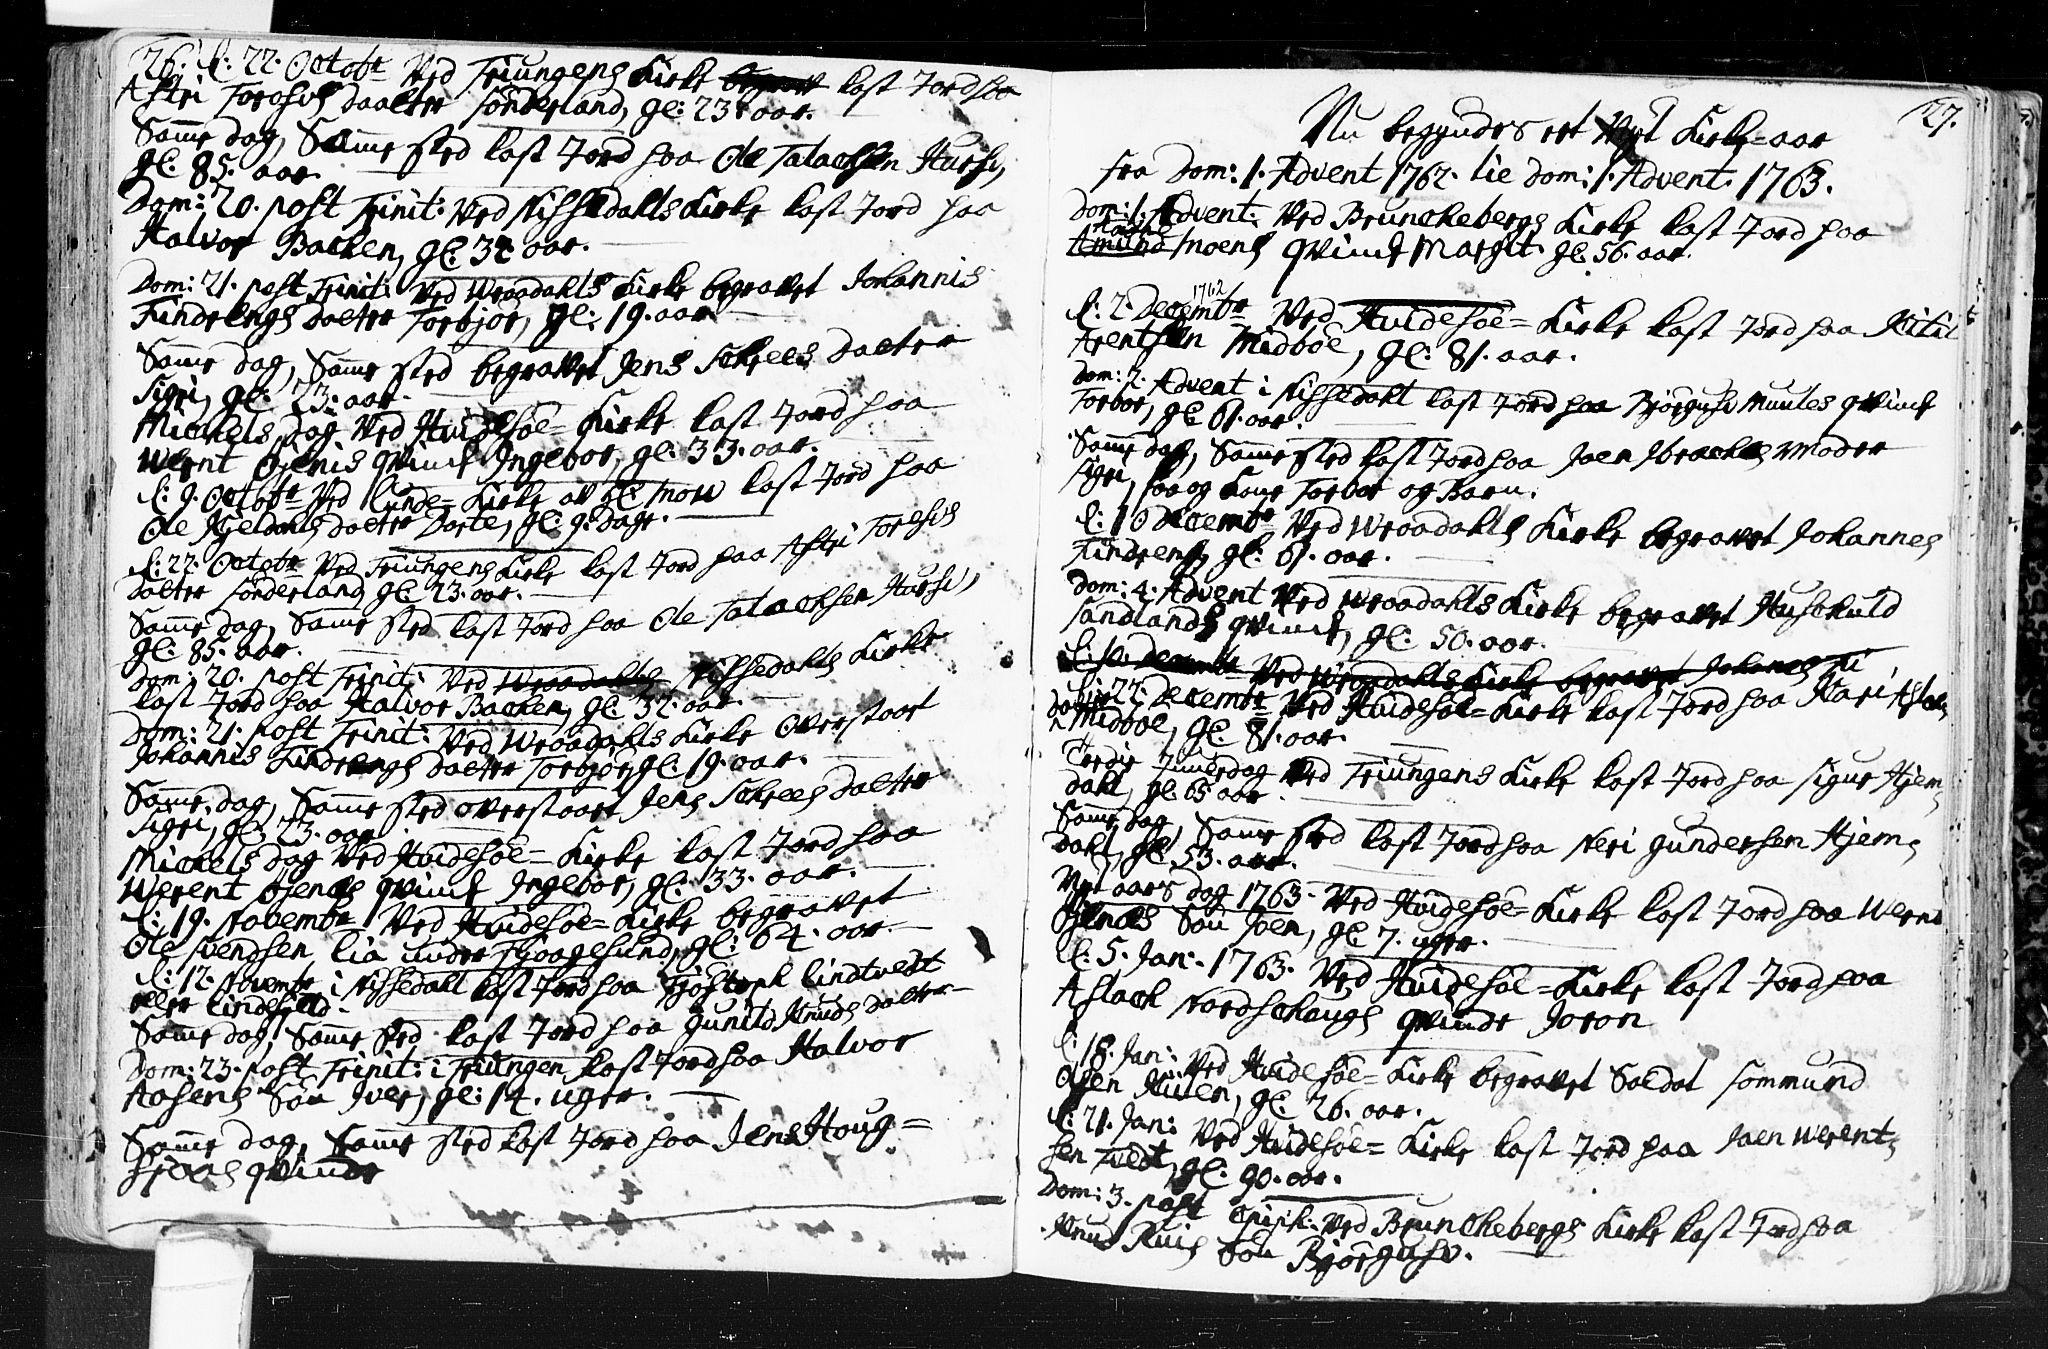 26. d: 22. Octobr Ved Triungens Kirke begravet kast Jord paa
Astri Torgusis daatter Sönderland, gl: 23. aar.
Samme dag, Samme sted kast Jord paa Ole Talachsen
gl: 85. aar.
Dom: 20. post Trinit: Ved Nissedahls Kirke kast Jord paa
Halvor Backen, gl: 32 aar.
Dom: 21. post Trinit: Ved Wraadahls Kirke begravet Johannis
Findrengs Datter Torbjor, gl: 19. aar.
Samme dag, Samme sted begravet Jens Schrees Datter
Sigri, gl: 23. aar.
Michels dag Ved Hvidesöe= Kirke kast Jord paa
Werent Qvinde Ingebor, gl: 33. aar.
d: 9. Octobr Ved Lunde= Kirke av Hl: kast Jord paa
Ole Kjeldahls Datter Dorte, gl: 9. Dage.
d: 22. Octobr Ved Triungens Kirke kast Jord paa Astri
Datter Sönderland, gl: 23. aar.
Samme dag, Samme sted kast Jord paa Ole Talachsen
gl: 85. aar.
Dom: 20. post Trinit: Ved Wraadahls Nissedahls Kirke
kast Jord paa Halvor Backen, gl: 32. aar.
Dom: 21. post Trinit: Ved Wraadahls Kirke Overstaaet
Johannis Findrengs Datter Torbjor, gl: 19. aar.
Samme dag, Samme sted overstaaet Jens Schrees Datter
Sigri, gl: 23. aar
Michels dag Ved Hvidesöe= Kirke kast Jord paa
Werent Qvinde Ingebor, gl: 33. aar.
d: 19. Novembr Ved Hvidesöe= Kirke begravet
Ole Svendsen Lia under Fjaagesund, gl: 64. aar.
d: 12. Novembr i Nissedahl kast Jord paa Lindtvedt
eller
Samme dag, Samme sted kast Jord paa Gunild Knuds Datter
Dom: 23. post Trinit: i Triungen kast Jord paa Halvor
Aasens Sön Iver, gl: 14. uger.
Samme dag, Samme sted kast Jord paa Jens Houg=
Qvinde
27.
Nu begyndes et Nyt Kirke=aar
fra Dom: 1. Advent 1762. til Dom: 1. Advent. 1763.
Dom: 1. Advent: Ved Brunchebergs Kirke kast Jord paa
Amund Moens Qvinde Margit. gl: 56. aar.
1762
d: 2. Decembr Ved Hvidesöe= Kirke kast Jord paa Kitil
Arentsen Midböe, gl: 81. aar.
Dom: 2. Advent i Nissedahl kast Jord paa Björgulv Qvinde
Torbor, gl: 61. aar.
Samme dag, Samme sted kast Jord paa Joen Moder
Sigri, paa og Kone Torbor og Barn.
d: 10 Decembr Ved Wraadahls Kirke begravet Johannes
Findreng, gl: 61. aar.
Dom: 4. Advent Ved Wraadahls Kirke begravet
Sandlands Qvinde, gl: 50. aar.
d: 10. Decembr Ved Wraadahls Kirke begravet Johannes
d: 27. Decembr Ved Hvidesöe= Kirke kast Jord paa Kari
Midböe, gl: 81. aar.
Tredie Juuledag Ved Triungens Kirke kast Jord paa Sigur Hjem=
dahl, gl: 65 aar.
Samme dag, Samme sted kast Jord paa Neri Gundersen Hjem=
dahl, gl: 53. aar.
Nyt aars dag 1763. Ved Hvidesöe= Kirke kast Jord paa Werent
Sön Joen, gl: 7. uger.
d: 5. Jan: 1763. Ved Hvidesöe= Kirke kast Jord paa
Aslach Nordschougs Qvinde Joron
d: 18. Jan: Ved Hvidesöe= Kirke begravet Soldat Sommund
Olsen gl: 26. aar.
d: 21. Jan: Ved Hvidesöe= Kirke kast Jord paa Joen Werent=
sen Tvedt, gl: 90. aar.
Dom: 3. post Epiph: Ved Brunchebergs Kirke kast Jord paa
Knud Ruis Sön Björgulv.